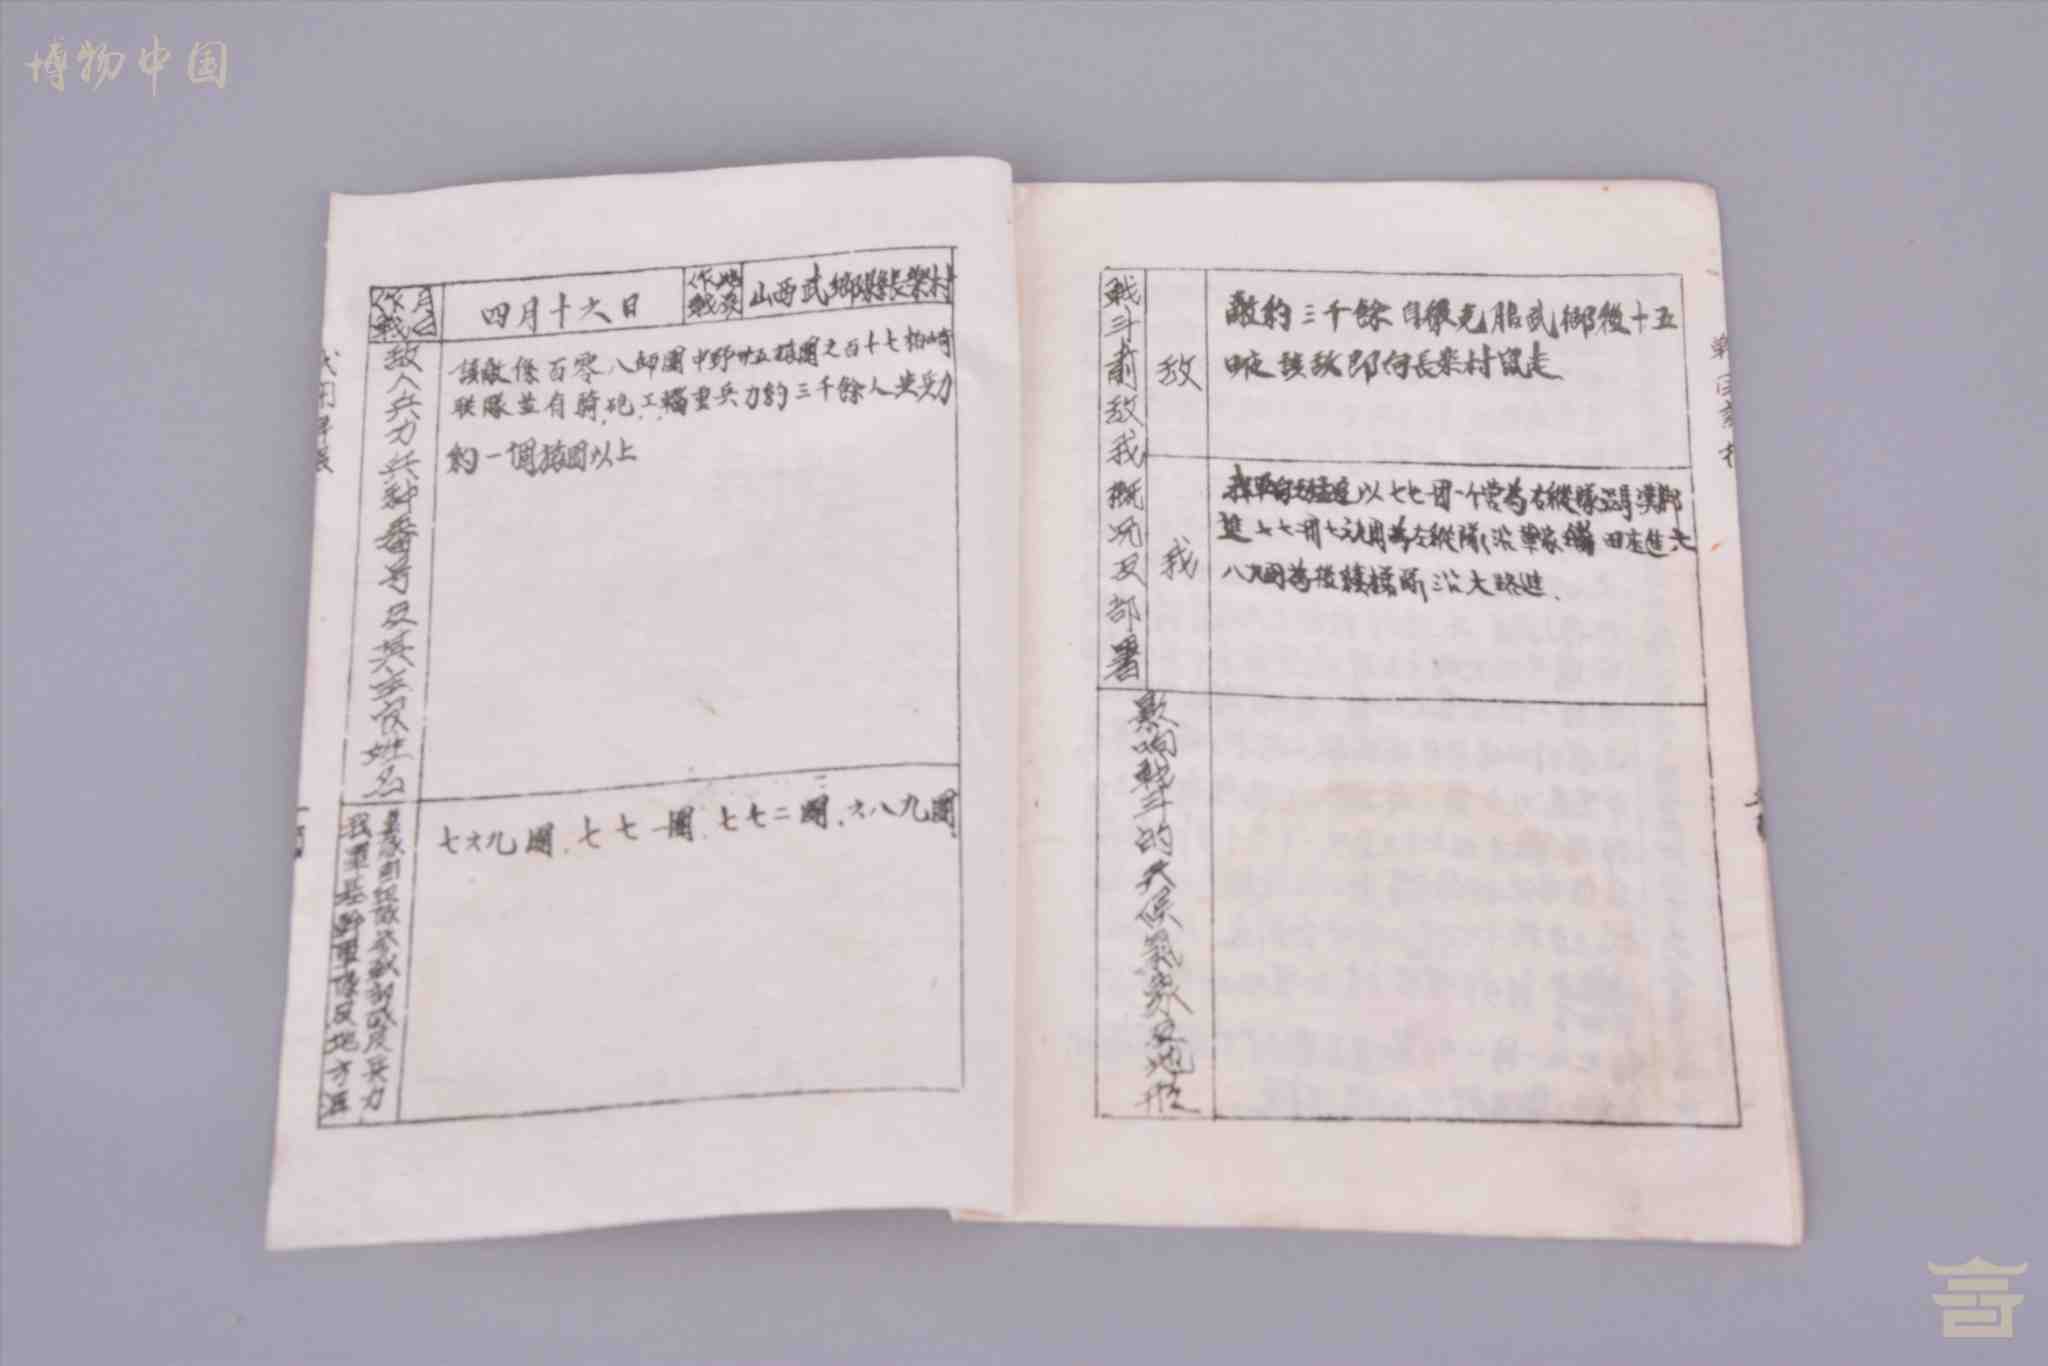 博物中国
作戰月日
四月十六日
作戰地点
山西武鄉縣長樂村
敌人兵力兵种番号及其主官姓名
該敵係百零八師團中野廿五旅團之百十七柏崎
联隊並有騎,砲.工.輜重兵力約三千餘人 共兵力
約一個旅團以上
我軍基幹軍隊及地方
参战部或及兵力
七六九團.七七一團.七七二團.六八九團.
戰斗前敌我概况及部署
敌
敵約三千餘自 武鄉後十五
日夜該敌即向長樂村 走
我
以七七一团一个营为右縱隊
進 七七 左縱隊沿 田庄進六
八九團為後續 沿大路進.
影响戰斗的天候氣象及地形